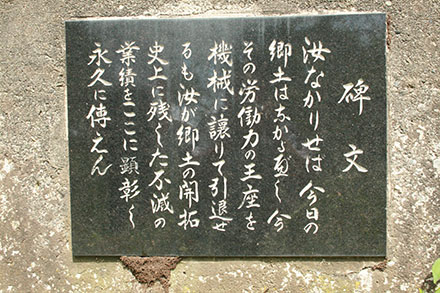 碑文
汝なかりせば今日の
郷土はなかるべし今
その労働力の王座を
機械に譲りて引退せ
るも汝が郷土の開拓
史上に残した不滅の
業績をここに顕彰し
永久に傳えん